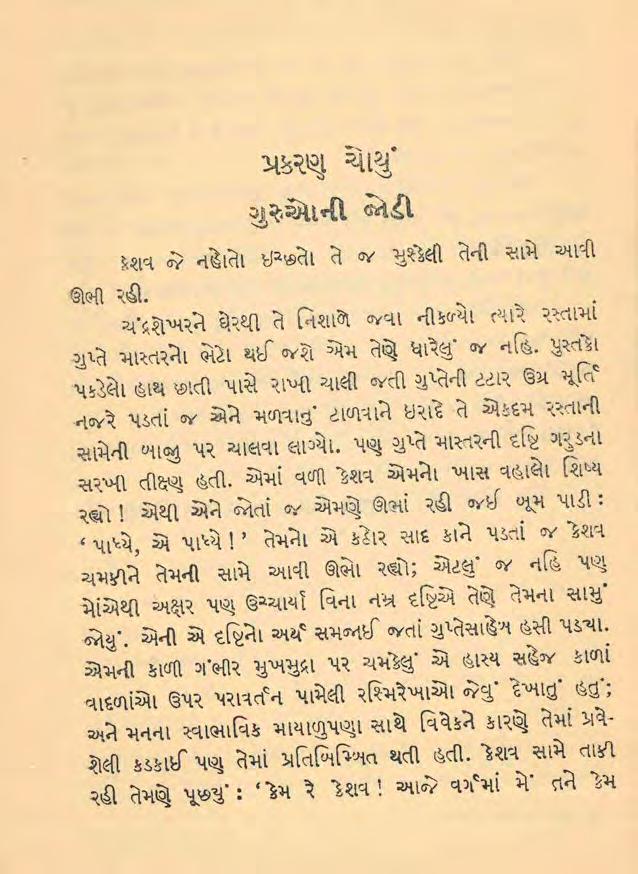 પ્રકરણ ચોથું
ગુરુઓની જોડી
કેશવ જે નહોતો ઇચ્છતો તે જ મુશ્કેલી તેની સામે આવી
ઊભી રહી.
ચંદ્રશેખરને ઘેરથી તે નિશાળે જવા નીકળ્યો ત્યારે રસ્તામાં
ગુપ્તે માસ્તરનો ભેટો થઈ જશે એમ તેણે ધારેલું જ નહિ. પુસ્તકો
પકડેલો હાથ છાતી પાસે રાખી ચાલી જતી ગુપ્તેની ટટાર ઉગ્ર મૂર્તિ
નજરે પડતાં જ એને મળવાનું ટાળવાને ઇરાદે તે એકદમ રસ્તાની
સામેની બાજુ પર ચાલવા લાગ્યો. પણ ગુપ્તે માસ્તરની દૃષ્ટિ ગરુડના
સરખી તીક્ષ્ણ હતી. એમાં વળી કેશવ એમનો ખાસ વહાલો શિષ્ય
રહ્યો! એથી એને જોતાં જ એમણે ઊભાં રહી જઈ બૂમ પાડી :
‘પાધ્યે, એ પાધ્યે!’ તેમનો એ કઠોર સાદ કાને પડતાં જ કેશવ
ચમકીને તેમની સામે આવી ઊભો રહ્યો; એટલું જ નહિ પણ
મોંએથી અક્ષર પણ ઉચ્ચાર્યા વિના નમ્ર દૃષ્ટિએ તેણે તેમના સામું
જોયું. એની એ દૃષ્ટિનો અર્થ સમજાઈ જતાં ગુપ્તેસાહેબ હસી પડ્યા.
એમની કાળી ગંભીર મુખમુદ્રા પર ચમકેલું એ હાસ્ય સહેજ કાળાં
વાદળાંઓ ઉપર પરાવર્તન પામેલી રશ્મિરેખાઓ જેવું દેખાતું હતું;
અને મનના સ્વાભાવિક માયાળુપણા સાથે વિવેકને કારણે તેમાં પ્રવે-
શેલી કડકાઈ પણ તેમાં પ્રતિબિમ્બિત થતી હતી. કેશવ સામે તાકી
રહી તેમણે પૂછયું : ‘કેમ રે કેશવ! આજે વર્ગમાં મેં તને કેમ